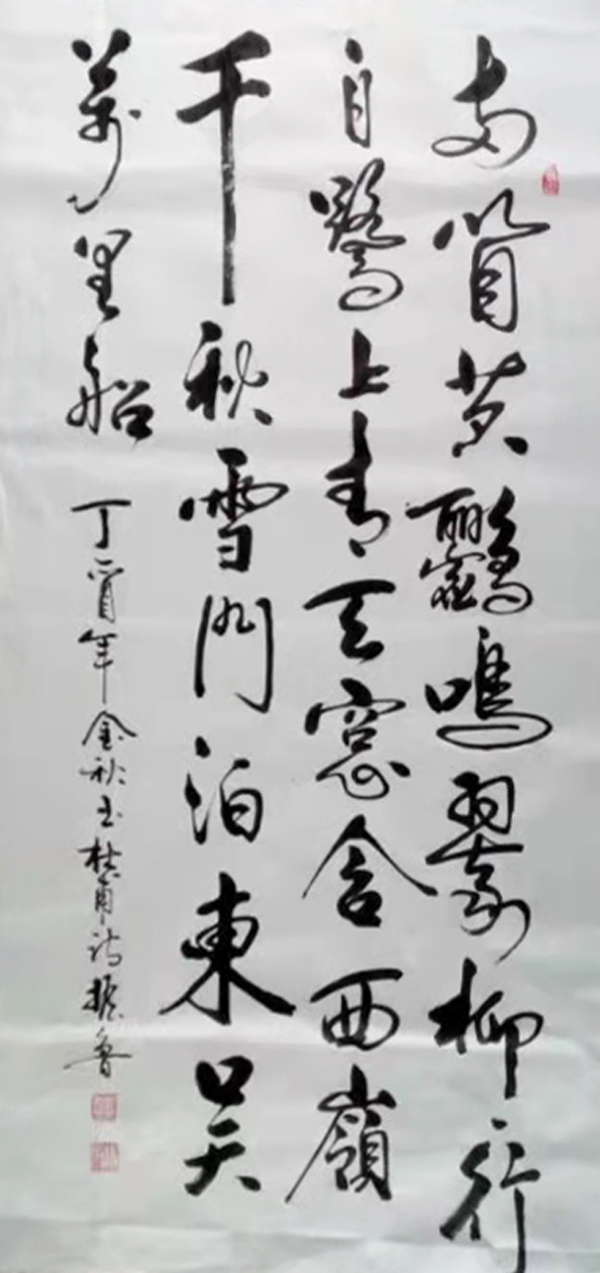 兩箇黃鸝鳴翠柳一行
白鷺上青天窗含西嶺
千秋雪門泊東吳
萬里船
丁酉年金秋書杜甫詩振魯